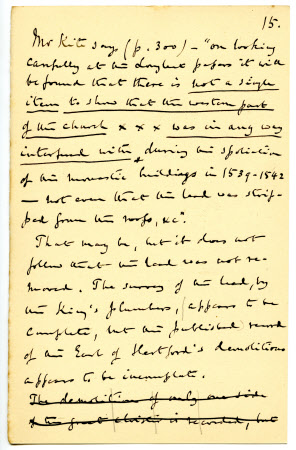 15.
Mr Kite says (p. 300) - "on looking
carefully at the Longleat papers it will
be found that there is not a single
item to show that the western part
of the church x x x was in any way
interfered with during the spoliation
of the monastic buildings in 1539-1542
- not even that the lead was strip-
ped from the roofs, &c".
That may be, but it does not
follow that the lead was not re-
moved. The survey of the lead, by
the King's plumbers, (appears to be
complete, but the published) record
of the Earl of Hertford's demolitions
appears to be incomplete.
The demolition of only one side
of the great cloister is recorded, but